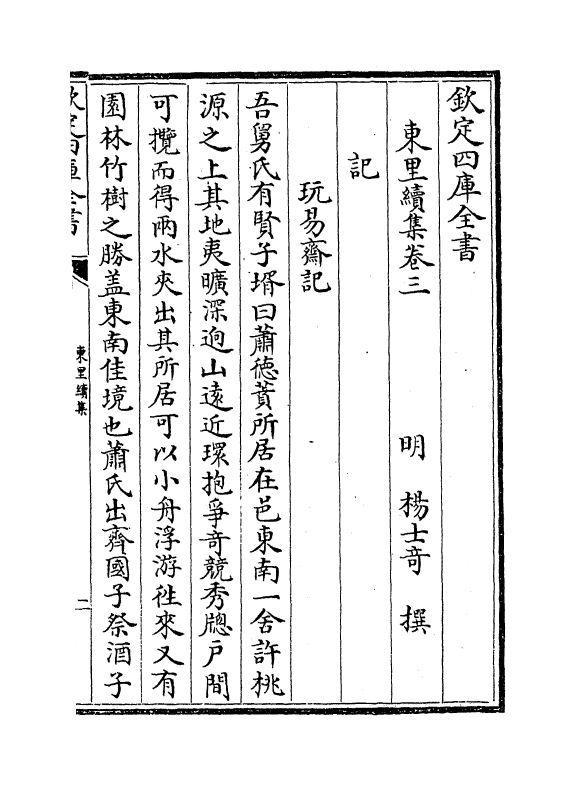 欽定四庫全書
東里續集卷三
明 楊士竒 撰
記
玩易齋記
吾舅氏有賢子壻曰蕭德蕡所居在邑東南一舍許桃
源之上其地夷曠深逈山遠近環抱爭竒競秀牕戶間
可攬而得兩水夾出其所居可以小舟浮游徃來又有
園林竹樹之勝盖東南佳境也蕭氏出齊國子祭酒子
欽定四庫全書
東里續集
二